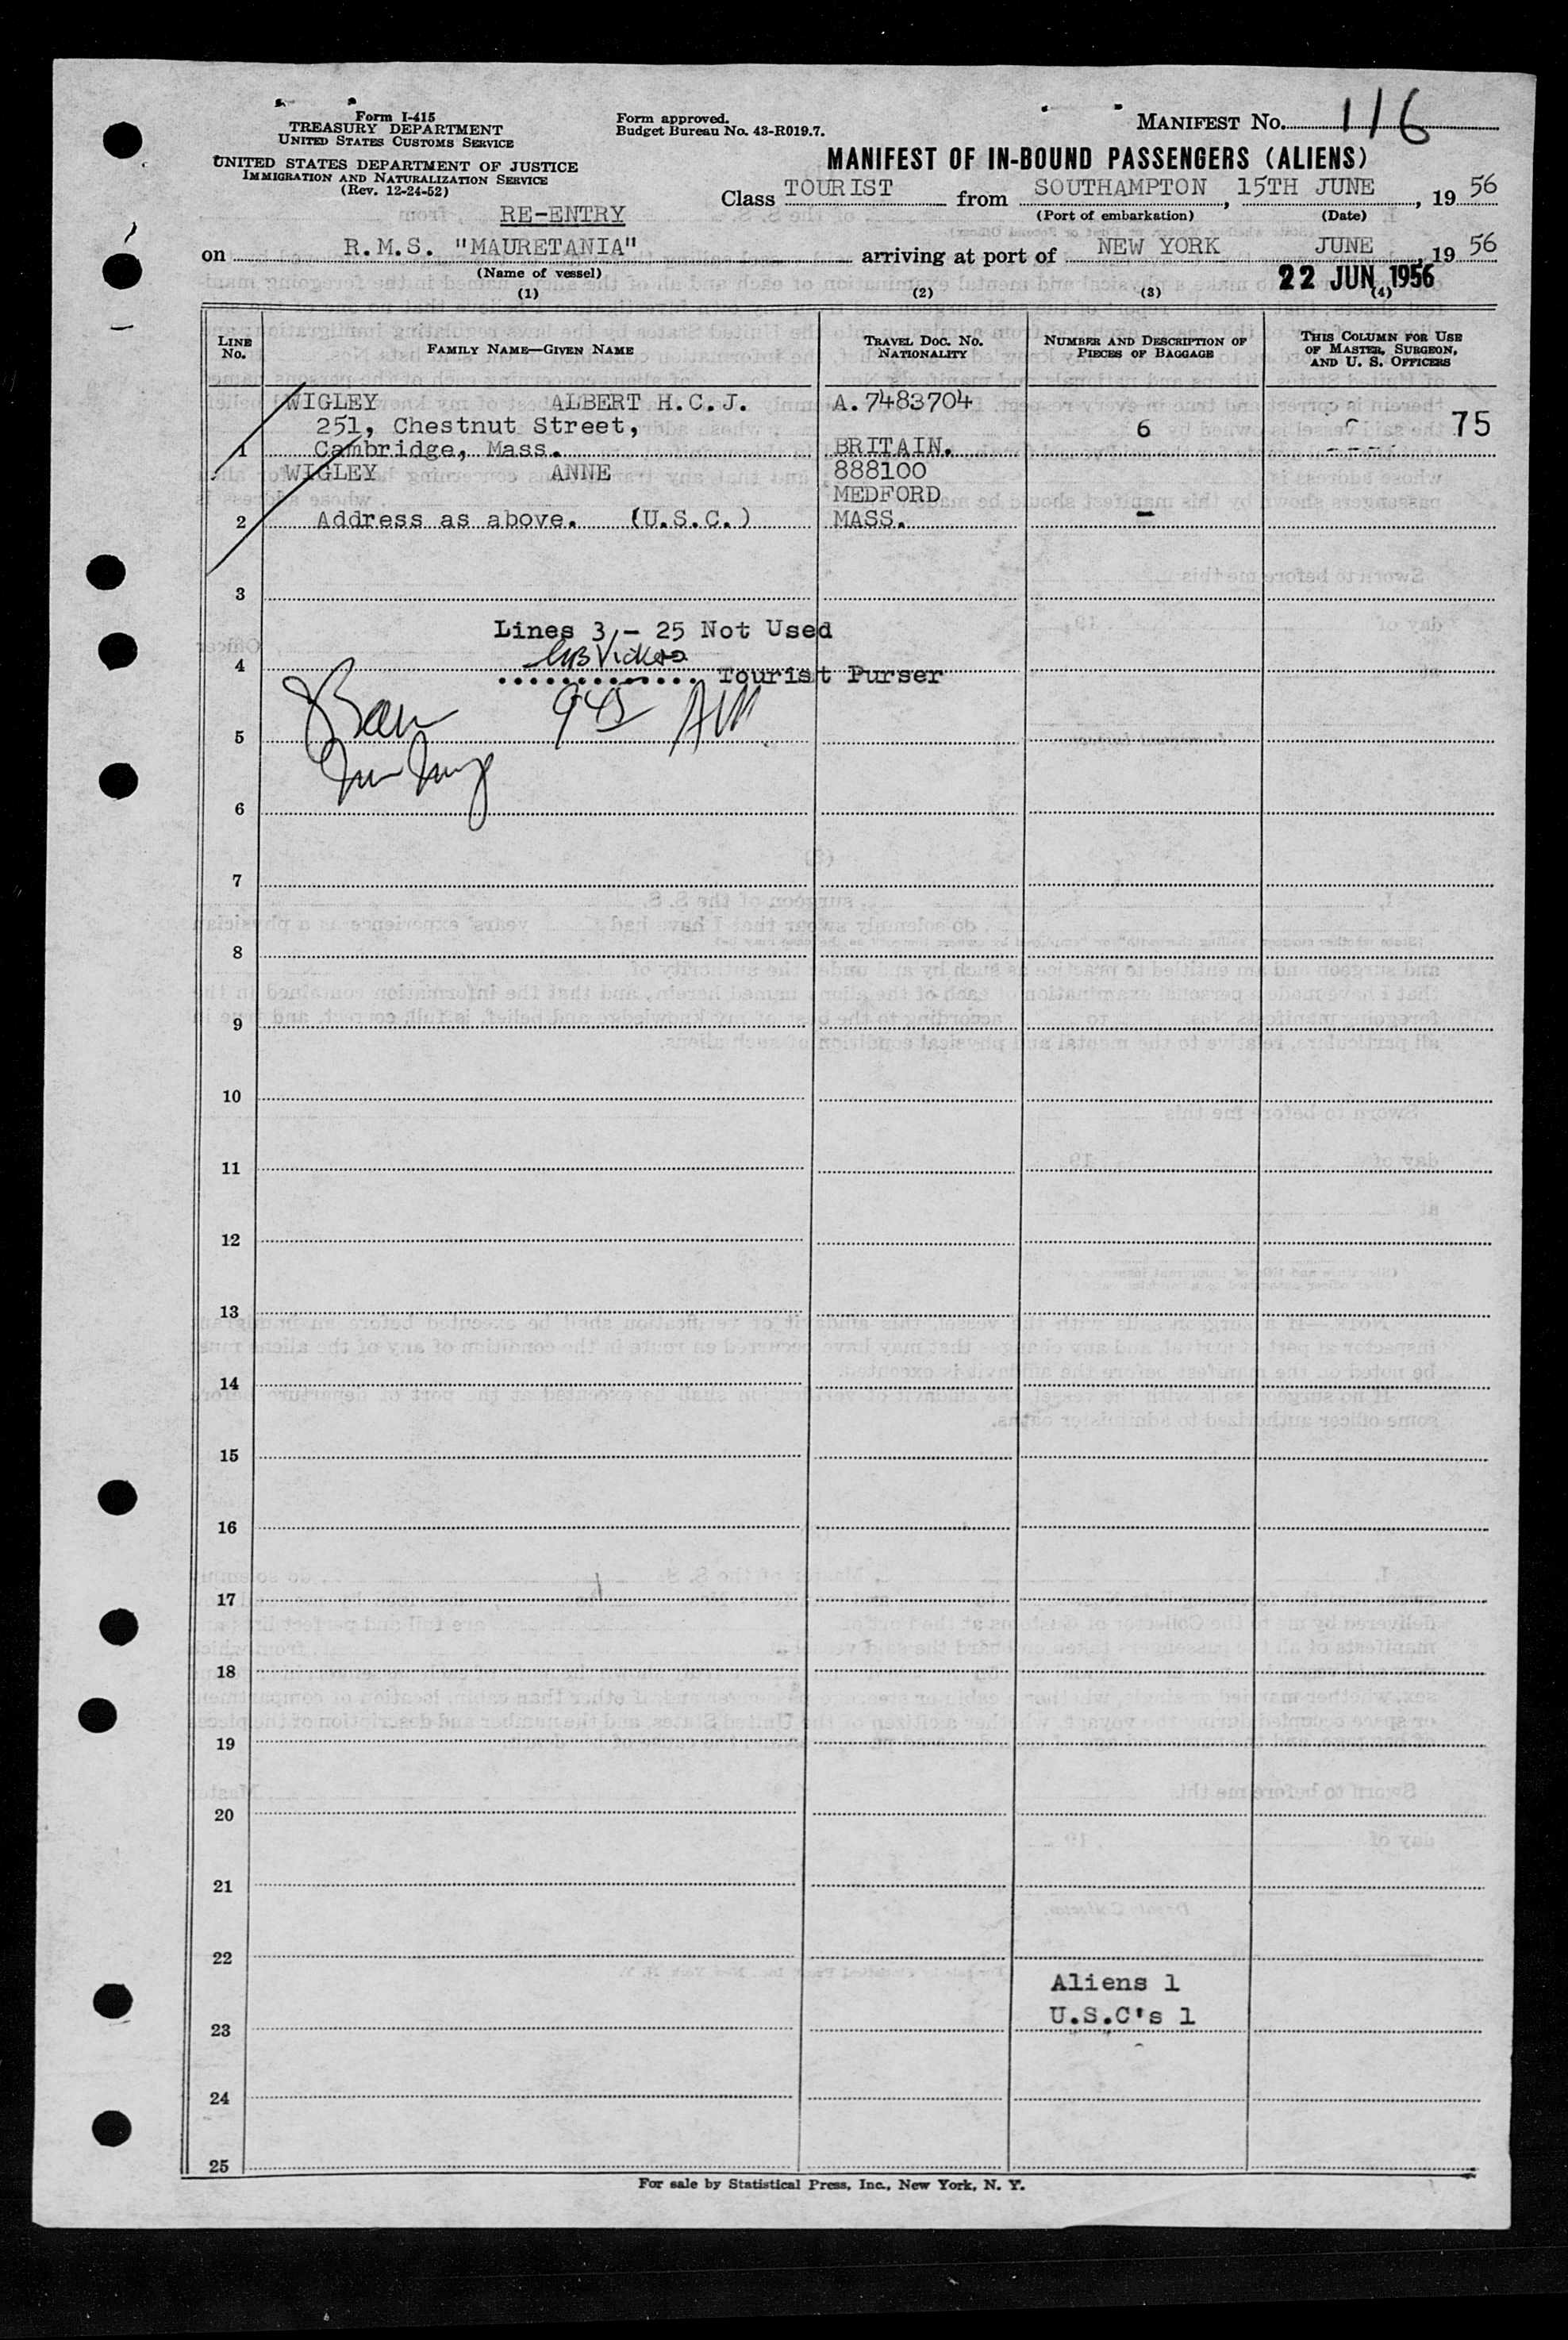 Form I-415
TREASURY DEPARTMENT
UNITED STATES CUSTOMS SERVICE
UNITED STATES DEPARTMENT OF JUSTICE
IMMIGRATION AND NATURALIZATION SERVICE
(Rev. 12-24-52)
Form approved.
Budget Bureau No. 43-R019.7.
MANIFEST No. 116
MANIFEST OF IN-BOUND PASSENGERS (ALIENS)
Class TOURIST from SOUTHAMPTON, 15TH JUNE, 19 56
(Port of embarkation) (Date)
RE-ENTRY
on R.M.S. "MAURETANIA" arriving at port of NEW YORK JUNE, 19 56
(Name of vessel)
22 JUN 1956
(1) (2) (3) (4)
LINE No. FAMILY NAME—GIVEN NAME TRAVEL DOC. NO. NATIONALITY NUMBER AND DESCRIPTION OF PIECES OF BAGGAGE THIS COLUMN FOR USE OF MASTER, SURGEON, AND U. S. OFFICERS
WIGLEY ALBERT H.C.J. A.7483704
251, Chestnut Street, 6 75
1 Cambridge, Mass. BRITAIN.
WIGLEY ANNE 888100
MEDFORD
2 Address as above. (U.S.C.) MASS. -
3
Lines 3 - 25 Not Used
4
............. Tourist Purser
945 AM
5
6
7
8
9
10
11
12
13
14
15
16
17
18
19
20
21
22
Aliens 1
U.S.C's 1
23
24
25
For sale by Statistical Press, Inc., New York, N. Y.